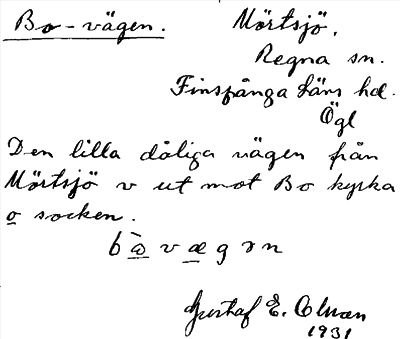 Bo-vägen. Mörtsjö,
Regna sn.
Finspånga läns hd.
Ögl
Den lilla dåliga vägen från
Mörtsjö v ut mot Bo kyrka
o socken.
Gustaf E.
1931